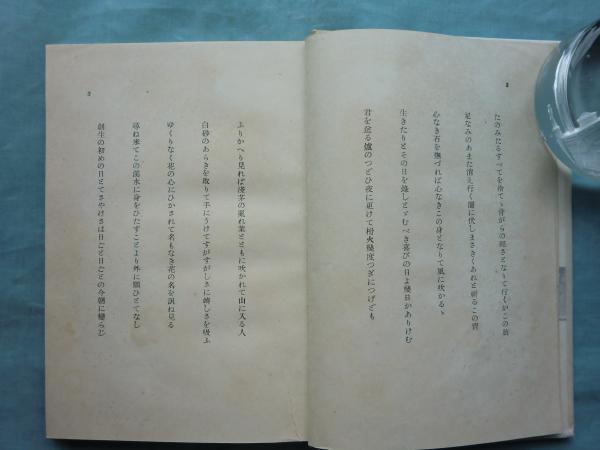 2
たのみたるすべてを捨てゝ身がらの軽さとなりて行くかこの旅
足なみのあまた消え行く闇に伏しまさきくあれと祈るこの宵
心なき石を撫づれば心なきこの身となりて風に吹かるゝ
生きたりとその日を錄しとむべき喜びの日よ幾日かありけむ
君を忿る爐のつどひ夜に更けて榾火幾度つぎにつげども
3
ふりかへり見れば淺茅の末れ葉とともに吹かれて山に入る人
白砂のあらきを取りて手にうけてすがすがしさに崎しさを吸ふ
ゆくりなく花の心にひかされて名もなき花の名を訊ね見る
尋ね來てこの溪水に身をひたすことより外に願ひとてなし
創生の初めの日とてさやけさは日ごと日ごとの今朝に變らじ